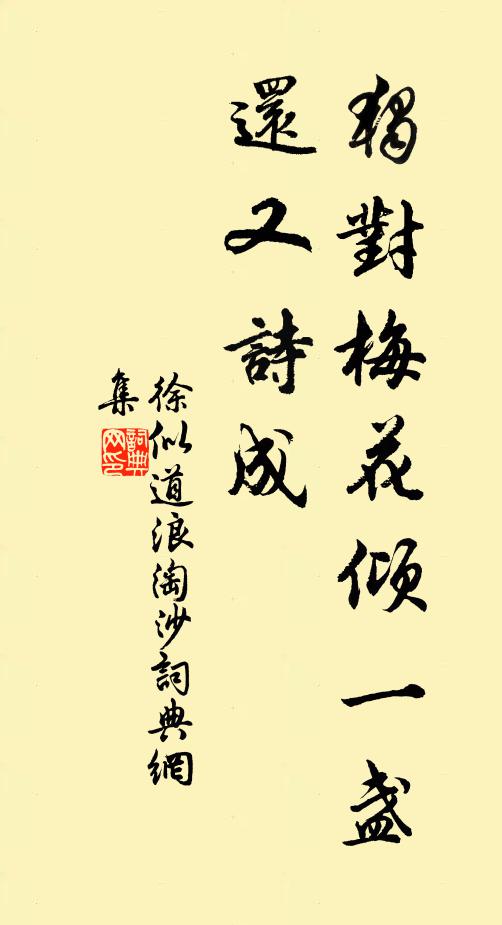 獨對梅花傾一盞
還又詩成
徐似道浪淘沙詞典網
集
詞典网印